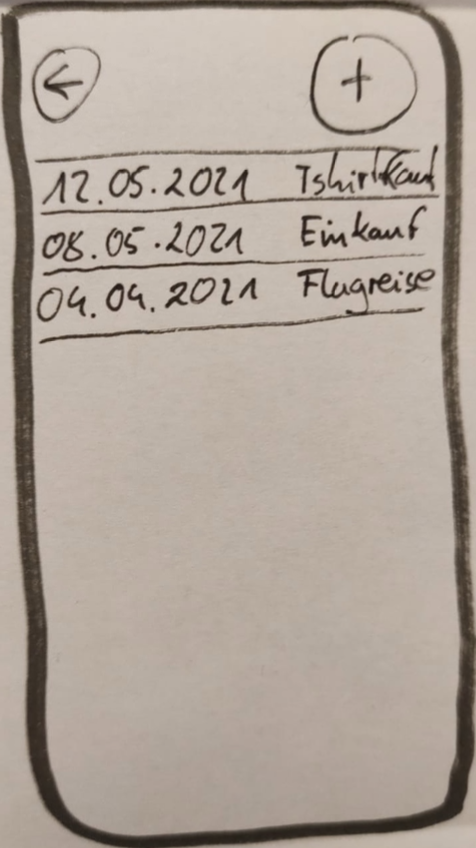 ←
+
12.05.2021 Tshirtkauf
08.05.2021 Einkauf
04.04.2021 Flugreise